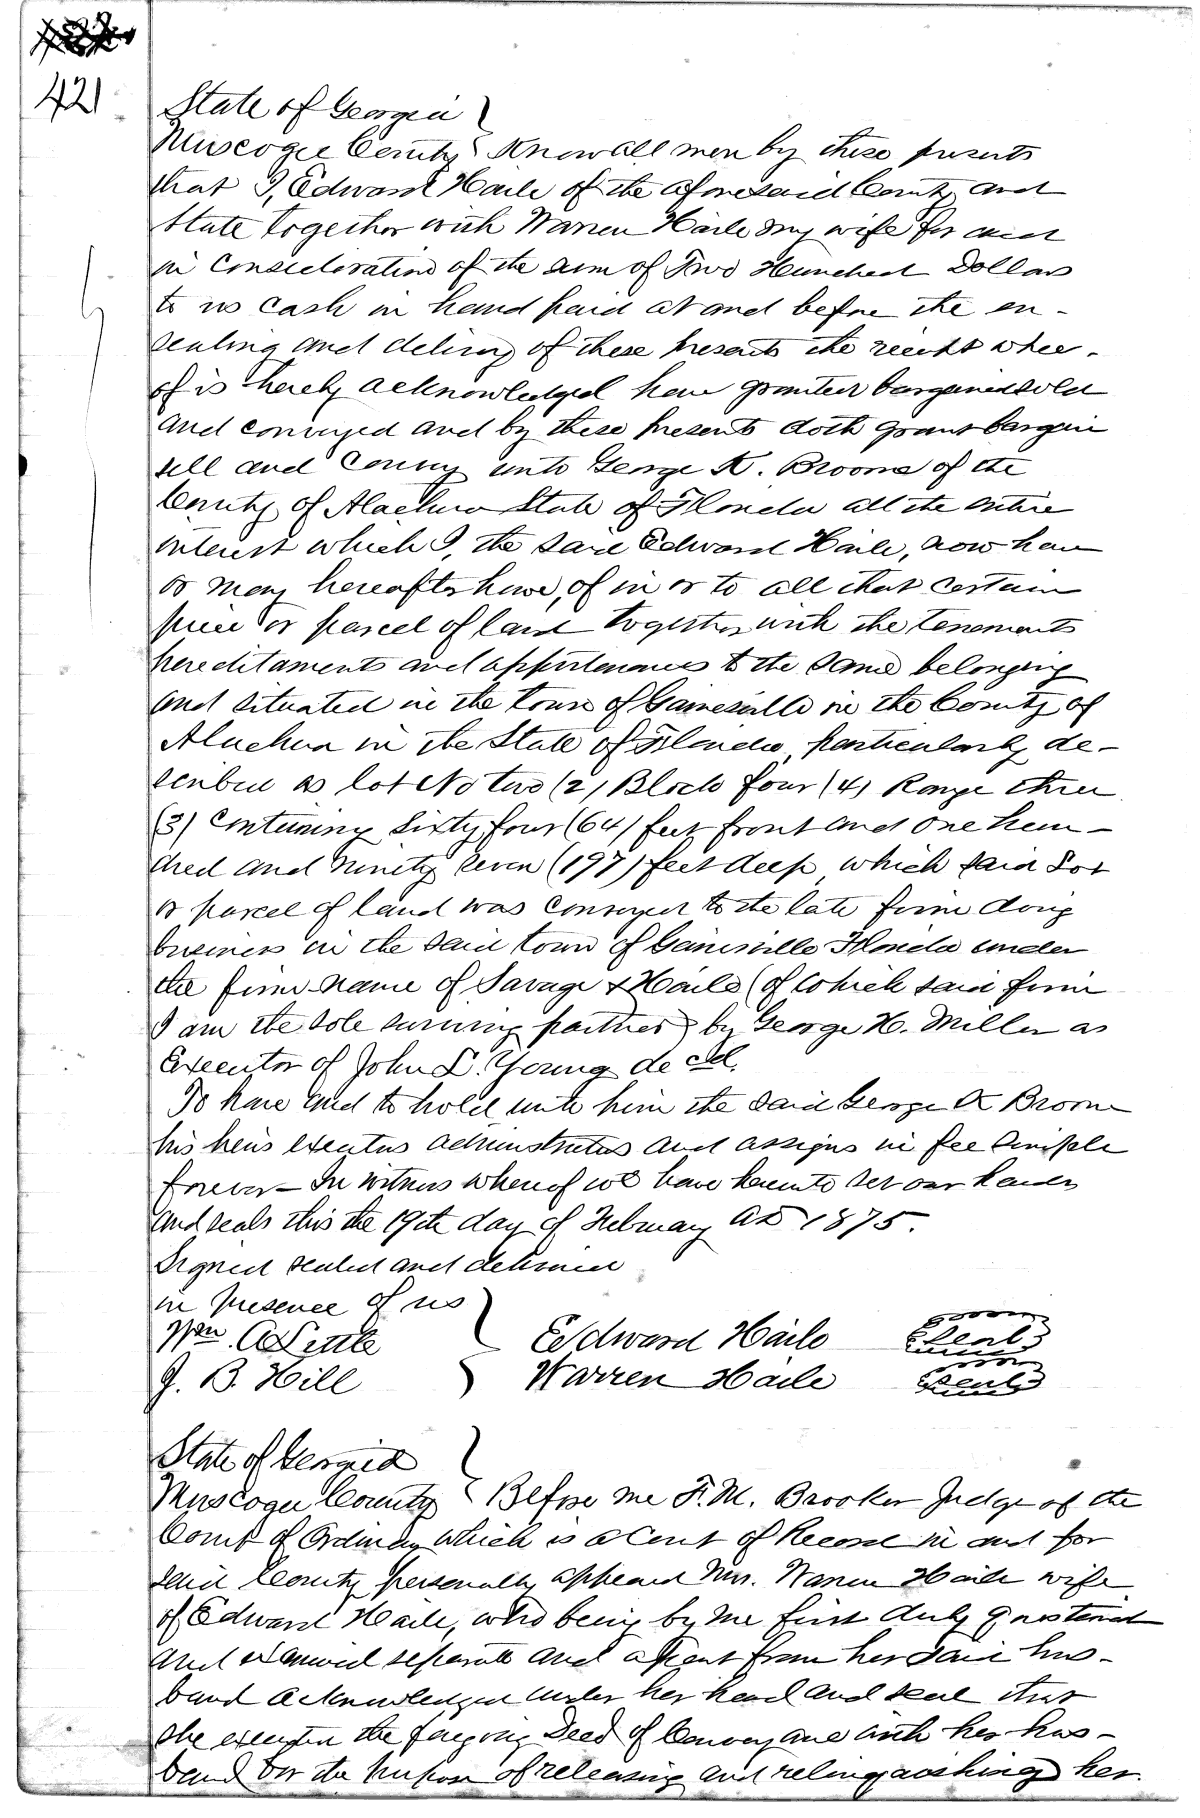 421
State of Georgia }
Muscogee County } Know all men by these presents
that I, Edward Haile of the aforesaid County and
State together with Warren Haile my wife for and
in consideration of the sum of Two Hundred Dollars
to us cash in hand paid at and before the en-
sealing and delivery of these presents the receipt wher-
of is hereby acknowledged have granted bargained sold
and conveyed and by these presents doth grant bargain
sell and convey unto George K. Broome of the
County of Alachua State of Florida all the entire
interest which I, the said Edward Haile, now have
or may hereafter have, of in or to all that certain
piece or parcel of land together with the tenements
hereditaments and appurtenances to the same belonging
and situated in the town of Gainesville in the County of
Alachua in the State of Florida, particularly de-
scribed as lot No two (2) Block four (4) Range three
(3) containing sixty four (64) feet front and one hun-
dred and ninety seven (197) feet deep, which said Lot
or parcel of land was conveyed to the late firm doing
business in the said town of Gainesville Florida under
the firm name of Savage & Haile (of which said firm
I am the sole surviving partner) by George H. Miller as
Executor of John L. Young decd.
To have and to hold unto him the said George K Broome
his heirs executors administrators and assigns in fee simple
forever- In witness whereof we have hereunto set our hands
and seals this the 19th day of February AD 1875.
Signed sealed and delivered
in presence of us }
Wm. A Little } Edward Haile Seal
J. B. Hill } Warren Haile Seal
State of Georgia }
Muscogee County } Before me F.M. Brooker Judge of the
Court of Ordinary which is a Court of Record in and for
said County personally appeared Mrs. Warren Haile wife
of Edward Haile, who being by me first duly questioned
and examined separate and apart from her said hus-
band acknowledged under her hand and seal that
she executed the foregoing Deed of Conveyance with her hus-
band for the purpose of releasing and relinquishing her